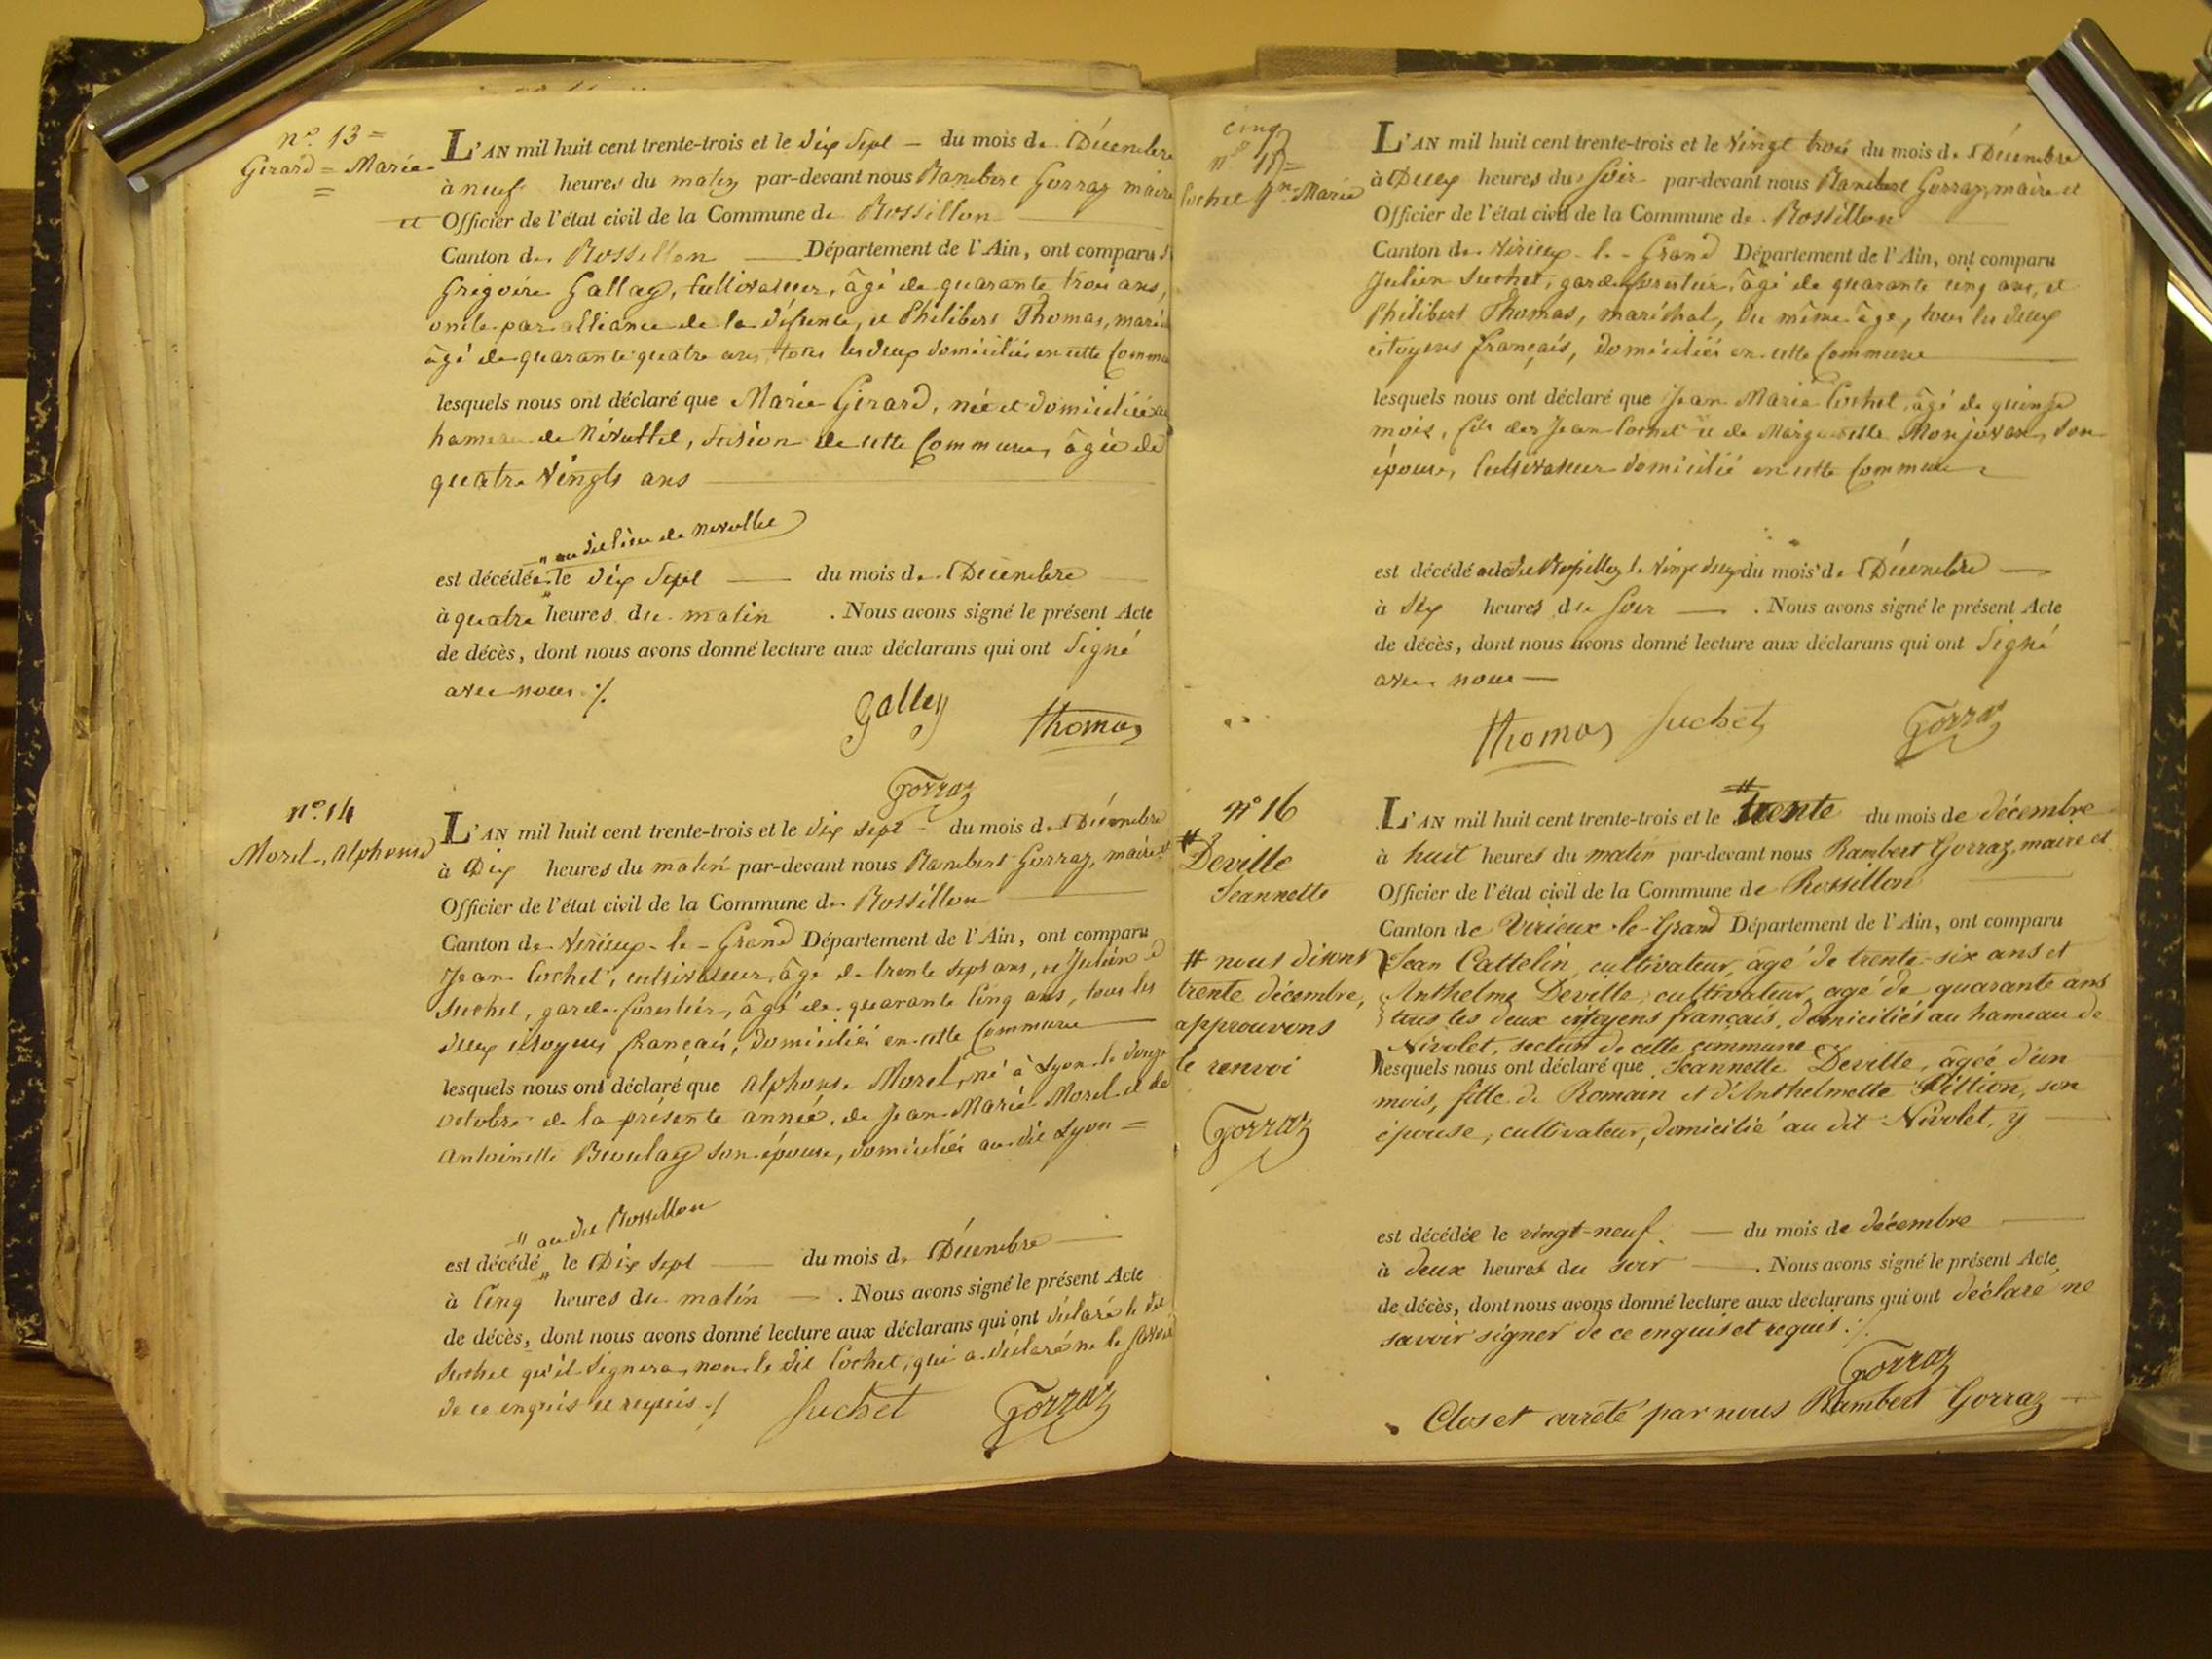 n° 13 =
Girard = Marie
L'AN mil huit cent trente-trois et le dix sept — du mois de Décembre
à neuf heures du matin par-devant nous Rambert Gorraz maire
et Officier de l'état civil de la Commune de Rossillon
Canton de Rossillon — Département de l'Ain, ont comparu
Grégoire Gallay, cultivateur, âgé de quarante trois ans,
oncle par alliance de la défunte, et Philibert Thomas,
âgé de quarante quatre ans, tous les deux domiciliés en cette
lesquels nous ont déclaré que Marie Girard, née et domiciliée au
hameau de Nivollet, section de cette Commune, âgée de
quatre vingts ans
" au dit lieu de Nivollet
est décédée le dix sept — du mois de Décembre
à quatre heures du matin . Nous avons signé le présent Acte
de décès, dont nous avons donné lecture aux déclarans qui ont signé
avec nous ./.
Galley Thomas
Gorraz
n° 14
Morel, Alphonse
L'AN mil huit cent trente-trois et le dix sept du mois de Décembre
à Dix heures du matin par-devant nous Rambert Gorraz, maire et
Officier de l'état civil de la Commune de Rossillon
Canton de Virieux-le-Grand Département de l'Ain, ont comparu
Jean Cochet, cultivateur, âgé de trente sept ans, et Julien
Suchet, garde forestier, âgé de quarante cinq ans, tous les
deux citoyens français, domiciliés en cette Commune
lesquels nous ont déclaré que Alphonse Morel, né à Lyon le douze
octobre de la présente année, de Jean Marie Morel et de
Antoinette son épouse, domiciliés au dit Lyon =
" au dit Rossillon
est décédé " le Dix sept — du mois de Décembre
à Cinq heures du matin — . Nous avons signé le présent Acte
de décès, dont nous avons donné lecture aux déclarans qui ont déclaré le dit
Suchet qu'il signera, non le dit Cochet, qui a déclaré ne le savoir
de ce enquis et requis ./
Suchet Gorraz
cinq
n° 15 =
Cochet Jn. Marie
L'AN mil huit cent trente-trois et le vingt trois du mois de Décembre
à Deux heures du soir par-devant nous Rambert Gorraz, maire et
Officier de l'état civil de la Commune de Rossillon
Canton de Virieux-le-Grand Département de l'Ain, ont comparu
Julien Suchet, garde forestier, âgé de quarante cinq ans, et
Philibert Thomas, maréchal, du même âge, tous les deux
citoyens français, domiciliés en cette Commune
lesquels nous ont déclaré que Jean Marie Cochet, âgé de quinze
mois, fils de Jean Cochet et de Marguerite Monjovan, son
épouse, Cultivateur domicilié en cette Commune
est décédé audit Rossillon le vingt deux du mois de Décembre —
à six heures du soir — . Nous avons signé le présent Acte
de décès, dont nous avons donné lecture aux déclarans qui ont signé
avec nous —
Thomas Suchet Gorraz
n° 16
# Deville
Jeannette
# nous disons
trente décembre,
approuvons
le renvoi
Gorraz
L'AN mil huit cent trente-trois et le # trente du mois de décembre
à huit heures du matin par-devant nous Rambert Gorraz, maire et
Officier de l'état civil de la Commune de Rossillon
Canton de Virieux-le-Grand Département de l'Ain, ont comparu
Jean Cattelin, cultivateur, âgé de trente-six ans et
Anthelme Deville, cultivateur, agé de quarante ans
tous les deux citoyens français, domiciliés au hameau de
Nivolet, section de cette commune
lesquels nous ont déclaré que Jeannette Deville, âgée d'un
mois, fille de Romain et d'Anthelmette Pittion, son
épouse, cultivateur, domicilié au dit Nivolet, y
est décédée le vingt-neuf. — du mois de décembre
à deux heures du soir — . Nous avons signé le présent Acte
de décès, dont nous avons donné lecture aux déclarans qui ont déclaré ne
savoir signer de ce enquis et requis ./.
Gorraz
Clos et arrêté par nous Rambert Gorraz